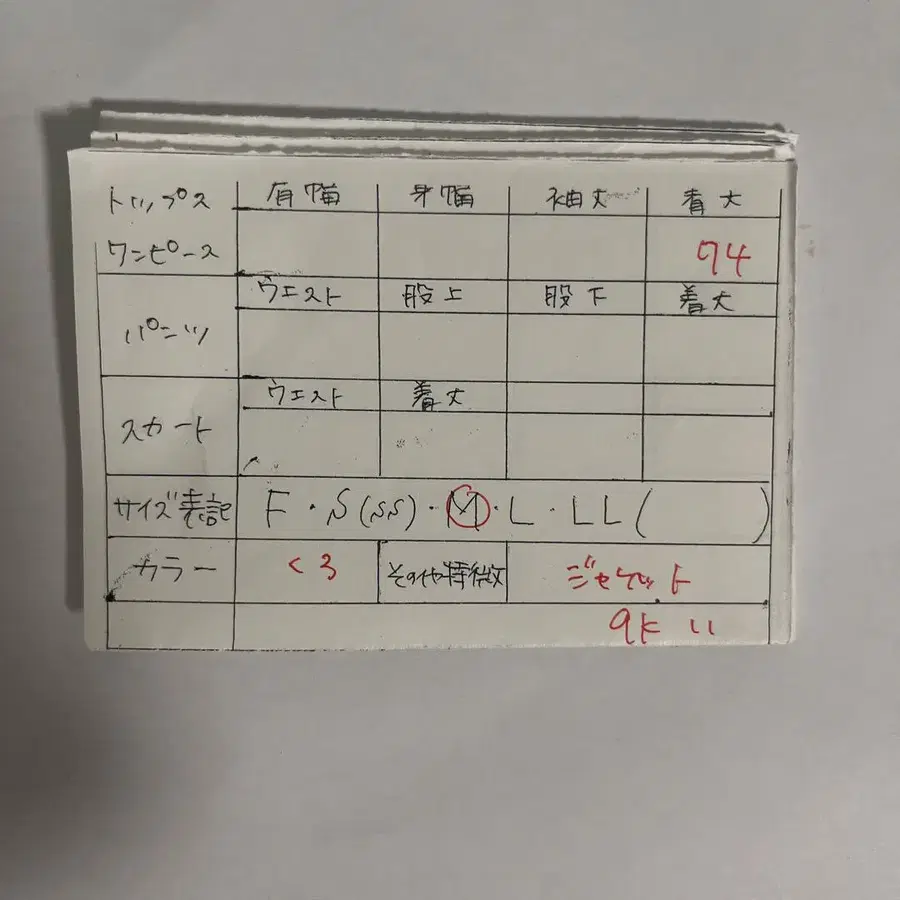 トップス 肩幅 身幅 袖丈 着丈
ワンピース 94
ウエスト 股上 股下 着丈
パンツ
ウエスト 着丈
スカート
サイズ表記 F・S(SS)・M・L・LL( )
カラー くろ その他特徴 ジャケット
9K 11